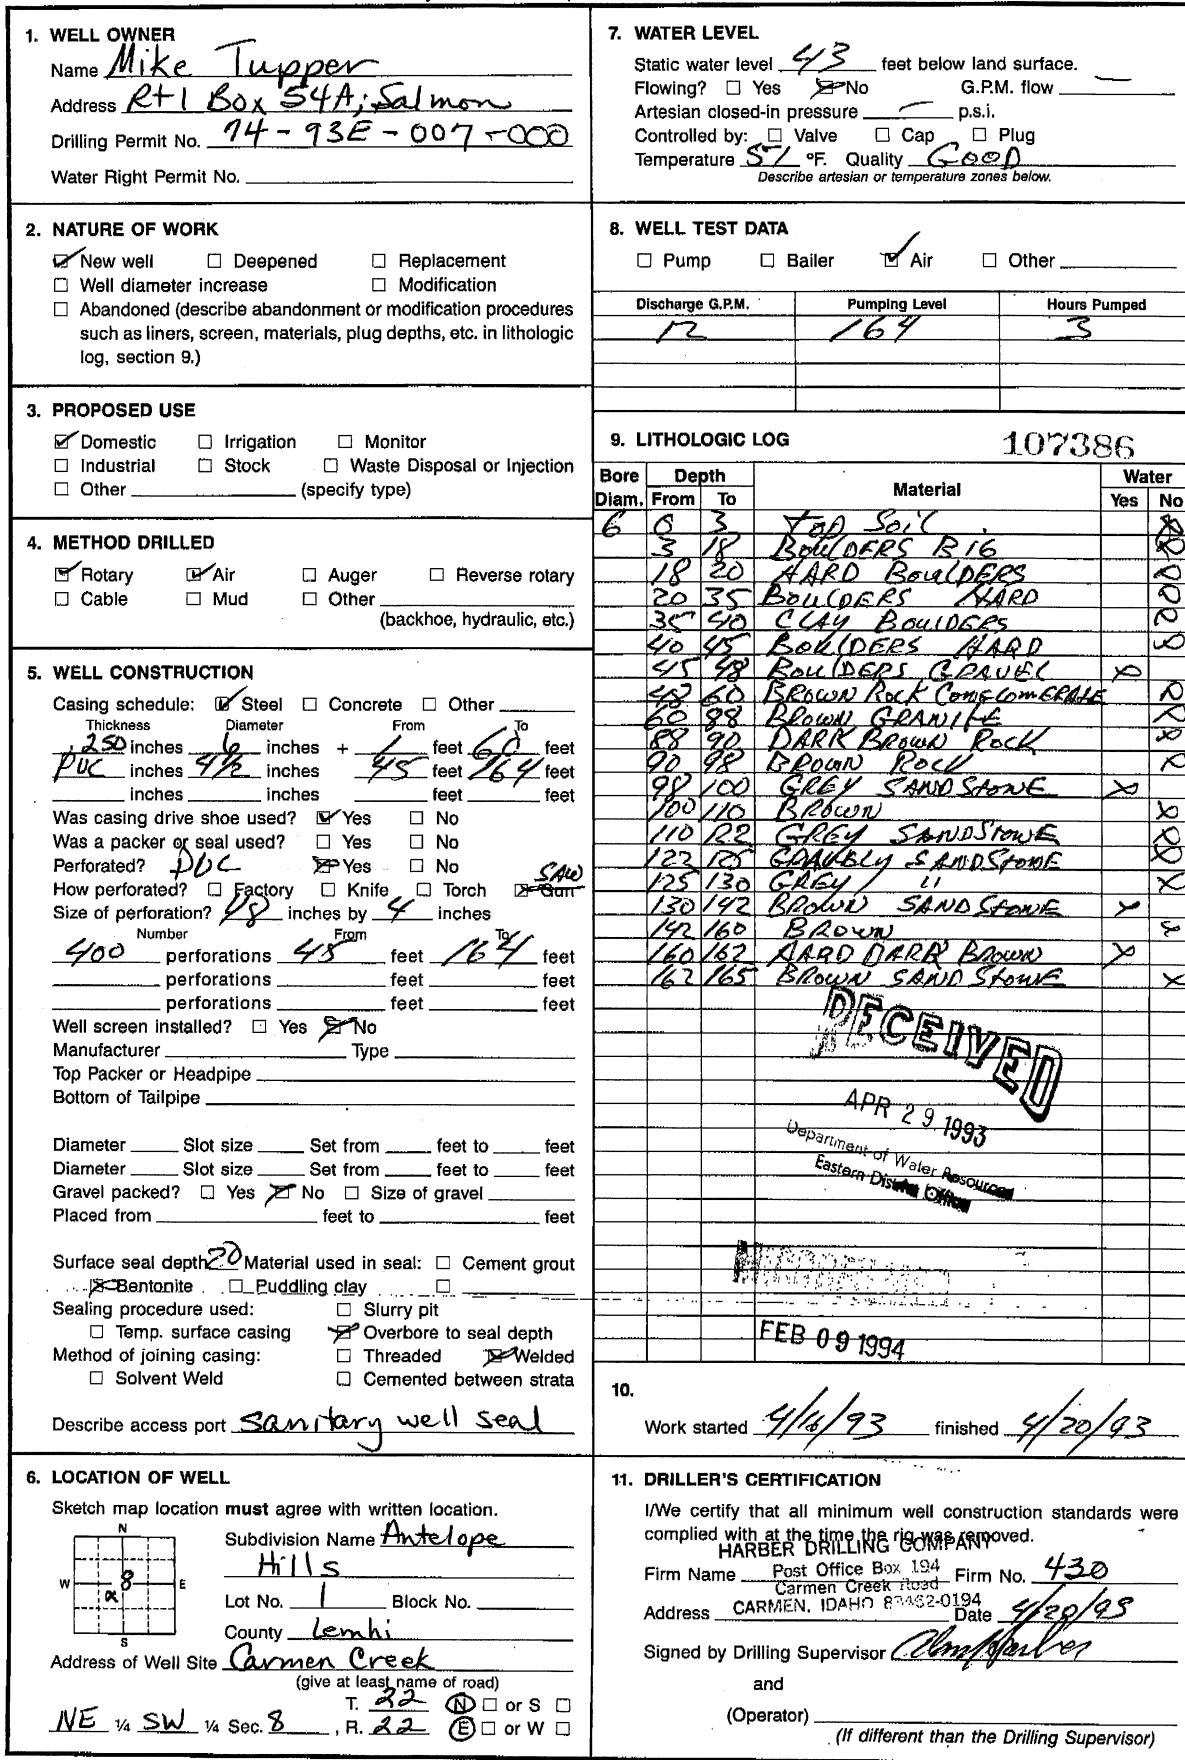 1. WELL OWNER
Name Mike Tupper
Address Rt 1 Box 54A; Salmon
Drilling Permit No. 74-93E-007-000
Water Right Permit No.
2. NATURE OF WORK
New well Deepened Replacement
Well diameter increase Modification
Abandoned (describe abandonment or modification procedures
such as liners, screen, materials, plug depths, etc. in lithologic
log, section 9.)
3. PROPOSED USE
Domestic Irrigation Monitor
Industrial Stock Waste Disposal or Injection
Other (specify type)
4. METHOD DRILLED
Rotary Air Auger Reverse rotary
Cable Mud Other
(backhoe, hydraulic, etc.)
5. WELL CONSTRUCTION
Casing schedule: Steel Concrete Other
Thickness Diameter From To
.250 inches 6 inches + 1 feet 60 feet
PVC inches 4½ inches 45 feet 164 feet
inches inches feet feet
Was casing drive shoe used? Yes No
Was a packer or seal used? Yes No
Perforated? PVC Yes No
SAW
How perforated? Factory Knife Torch Gun
Size of perforation? 1/8 inches by 4 inches
Number From To
400 perforations 45 feet 164 feet
perforations feet feet
perforations feet feet
Well screen installed? Yes No
Manufacturer Type
Top Packer or Headpipe
Bottom of Tailpipe
Diameter Slot size Set from feet to feet
Diameter Slot size Set from feet to feet
Gravel packed? Yes No Size of gravel
Placed from feet to feet
Surface seal depth 20 Material used in seal: Cement grout
Bentonite Puddling clay
Sealing procedure used: Slurry pit
Temp. surface casing Overbore to seal depth
Method of joining casing: Threaded Welded
Solvent Weld Cemented between strata
Describe access port sanitary well seal
6. LOCATION OF WELL
Sketch map location must agree with written location.
N
W E
S
8
x
Subdivision Name Antelope
Hills
Lot No. 1 Block No.
County Lemhi
Address of Well Site Carmen Creek
(give at least name of road)
T. 22 N or S
NE ¼ SW ¼ Sec. 8, R. 22 E or W
7. WATER LEVEL
Static water level 43 feet below land surface.
Flowing? Yes No G.P.M. flow —
Artesian closed-in pressure — p.s.i.
Controlled by: Valve Cap Plug
Temperature 51 °F. Quality GOOD
Describe artesian or temperature zones below.
8. WELL TEST DATA
Pump Bailer Air Other
Discharge G.P.M. Pumping Level Hours Pumped
12 164 3
9. LITHOLOGIC LOG 107386
Bore Depth Water
Diam. From To Material Yes No
6 0 3 Top Soil . X
3 18 BOulDERS BIG X
18 20 HARD BOulDERS X
20 35 BOulDERS HARD X
35 40 CLAY BOulDERS X
40 45 BOulDERS HARD X
45 48 BOulDERS GRAVEL X
48 60 BROWN ROCK COMGLOMERATE X
60 88 BROWN GRANITE X
88 90 DARK BROWN ROCK X
90 98 BROWN ROCK X
98 100 GREY SANDSTONE X
100 110 BROWN X
110 122 GREY SANDSTONE X
122 125 GRAUBLY SANDSTONE X
125 130 GREY / " X
130 142 BROWN SANDSTONE X
142 160 BROWN X
160 162 HARD DARK BROWN X
162 165 BROWN SANDSTONE X
RECEIVED
APR 29 1993
Department of Water Resources
Eastern District Office
FEB 09 1994
10.
Work started 4/16/93 finished 4/20/93
11. DRILLER'S CERTIFICATION
I/We certify that all minimum well construction standards were
complied with at the time the rig was removed.
HARBER DRILLING COMPANY
Firm Name Post Office Box 194 Firm No. 430
Carmen Creek Road
Address CARMEN, IDAHO 83462-0194 Date 4/20/93
Signed by Drilling Supervisor
and
(Operator)
(If different than the Drilling Supervisor)